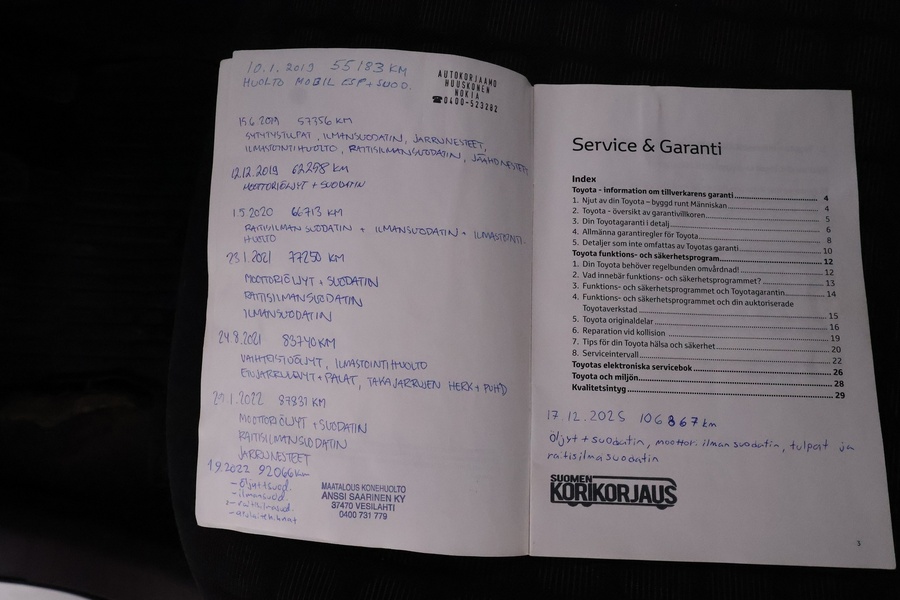 10.1.2019 55183 KM
HUOLTO MOBIL ESP + SUOD.
AUTOKORJAAMO
HUUSKONEN
NOKIA
☎0400-523282
15.6.2019 57356 KM
SYTYTYSTULPAT, ILMANSUODATIN, JARRUNESTEET,
ILMASTOINTIHUOLTO, RAITISILMANSUODATIN, JÄÄHD.NESTEET
12.12.2019 62258 KM
MOOTTORIÖLJYT + SUODATIN
1.5.2020 66713 KM
RAITISILMAN SUODATIN + ILMANSUODATIN + ILMASTOINTI.
HUOLTO
23.1.2021 77250 KM
MOOTTORIÖLJYT + SUODATIN
RAITISILMANSUODATIN
ILMANSUODATIN
24.8.2021 83740 KM
VAIHTEISTOÖLJYT, ILMASTOINTIHUOLTO
ETUJARRULEVYT + PALAT, TAKAJARRUJEN HERK + PUHD
29.1.2022 87831 KM
MOOTTORIÖLJYT + SUODATIN
RAITISILMANSUODATIN
JARRUNESTEET
1.9.2022 92066 km
- öljyt+suod.
- ilmansuod.
- raitisilmasud.
MAATALOUS KONEHUOLTO
ANSSI SAARINEN KY
37470 VESILAHTI
0400 731 779
Service & Garanti
Index
Toyota - information om tillverkarens garanti 4
1. Njut av din Toyota – byggd runt Människan 4
2. Toyota - översikt av garantivillkoren 5
3. Din Toyotagaranti i detalj 6
4. Allmänna garantiregler för Toyota 8
5. Detaljer som inte omfattas av Toyotas garanti 10
Toyota funktions- och säkerhetsprogram 12
1. Din Toyota behöver regelbunden omvårdnad! 12
2. Vad innebär funktions- och säkerhetsprogrammet? 13
3. Funktions- och säkerhetsprogrammet och Toyotagarantin 14
4. Funktions- och säkerhetsprogrammet och din auktoriserade
Toyotaverkstad 15
5. Toyota originaldelar 16
6. Reparation vid kollision 19
7. Tips för din Toyota hälsa och säkerhet 20
8. Serviceintervall 22
Toyotas elektroniska servicebok 26
Toyota och miljön 28
Kvalitetsintyg 29
17.12.2025 106867 km
öljyt + suodatin, moottor. ilman suodatin, tulpat ja
raitisilmasuodatin
SUOMEN
KORIKORJAUS
3